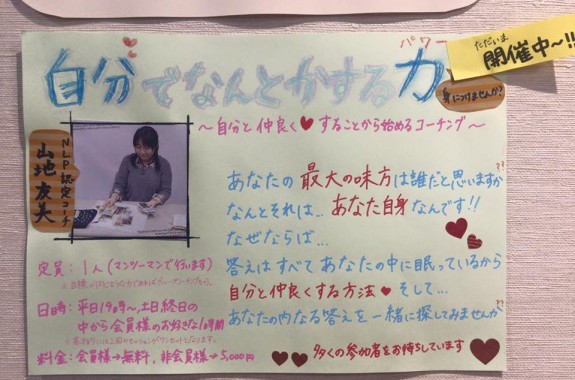 ただいま
開催中〜!!
自分でなんとかする力
パワー
身につけませんか?
〜自分と仲良く♥することから始めるコーチング〜
NLP認定コーチ
あなたの最大の味方は誰だと思いますか??
なんとそれは… あなた自身なんです!!
なぜならば…
答えはすべてあなたの中に眠っているから
自分と仲良くする方法♥そして…
あなたの内なる答えを一緒に探してみませんか??
多くの参加者をお待ちしています
定員:1人(マンツーマンで行います)
日時:平日19時〜、土日終日の
中から会員様のお好きな1時間
料金:会員様→無料、非会員様→5,000円